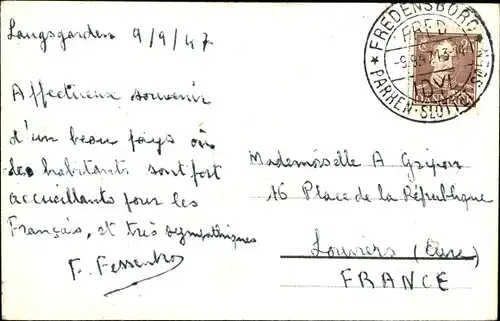 Langsgarden 9/9/47
Affectueux souvenir
d'un beau pays où
des habitants sont fort
accueillants pour les
Français, et très sympathiques
F.
Mademoiselle A Gripon
16 Place de la République
Louviers (Eure)
FRANCE
FREDENSBORG
FRED
-9.9.47.13-14
IDYL
PARKEN · SLOTTET